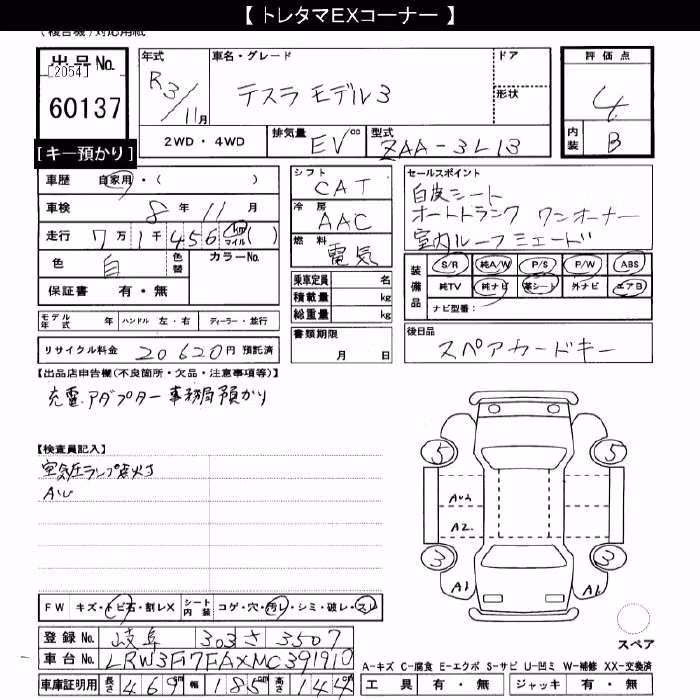 【トレタマEXコーナー】
(複合機)対応用紙
出品No.
[2054]
60137
[キー預かり]
年式
R3/11月
車名・グレード
テスラ モデル3
ドア
形状
2WD・4WD
排気量
EV cc
型式
ZAA-3L13
評価点
4
内装
B
車歴 自家用・( )
車検 8年11月
走行 7万1千456 km マイル ( )
色 白
色替
カラーNo.
保証書 有・無
モデル年式 年 ハンドル 左・右 ディーラー・並行
リサイクル料金 20620円 預託済
シフト
CAT
冷房
AAC
燃料
電気
乗車定員 名
積載量 kg
総重量 kg
書類期限
月 日
セールスポイント
白皮シート
オートトランク ワンオーナー
室内ルーフシェード
装備品
S/R 純A/W P/S P/W ABS
純TV 純ナビ 革シート 外ナビ エアB
ナビ型番:
後日品
スペアカードキー
【出品店申告欄(不良箇所・欠品・注意事項等)】
充電アダプター 事務局預かり
【検査員記入】
空気圧ランプ点火す
AW
5
5
A2
3
3
A1
A1
スペア
FW キズ・トビ石・割レX シート内装 コゲ・穴・汚レ・シミ・破レ・スレ
登録No. 岐阜 303 さ 3507
車台No. LRW3F7FAXMC391910
車庫証明用 長さ 469cm 幅 185cm 高さ 144cm
A-キズ C-腐食 E-エクボ S-サビ U-凹ミ W-補修 XX-交換済
工具 有・無 ジャッキ 有・無